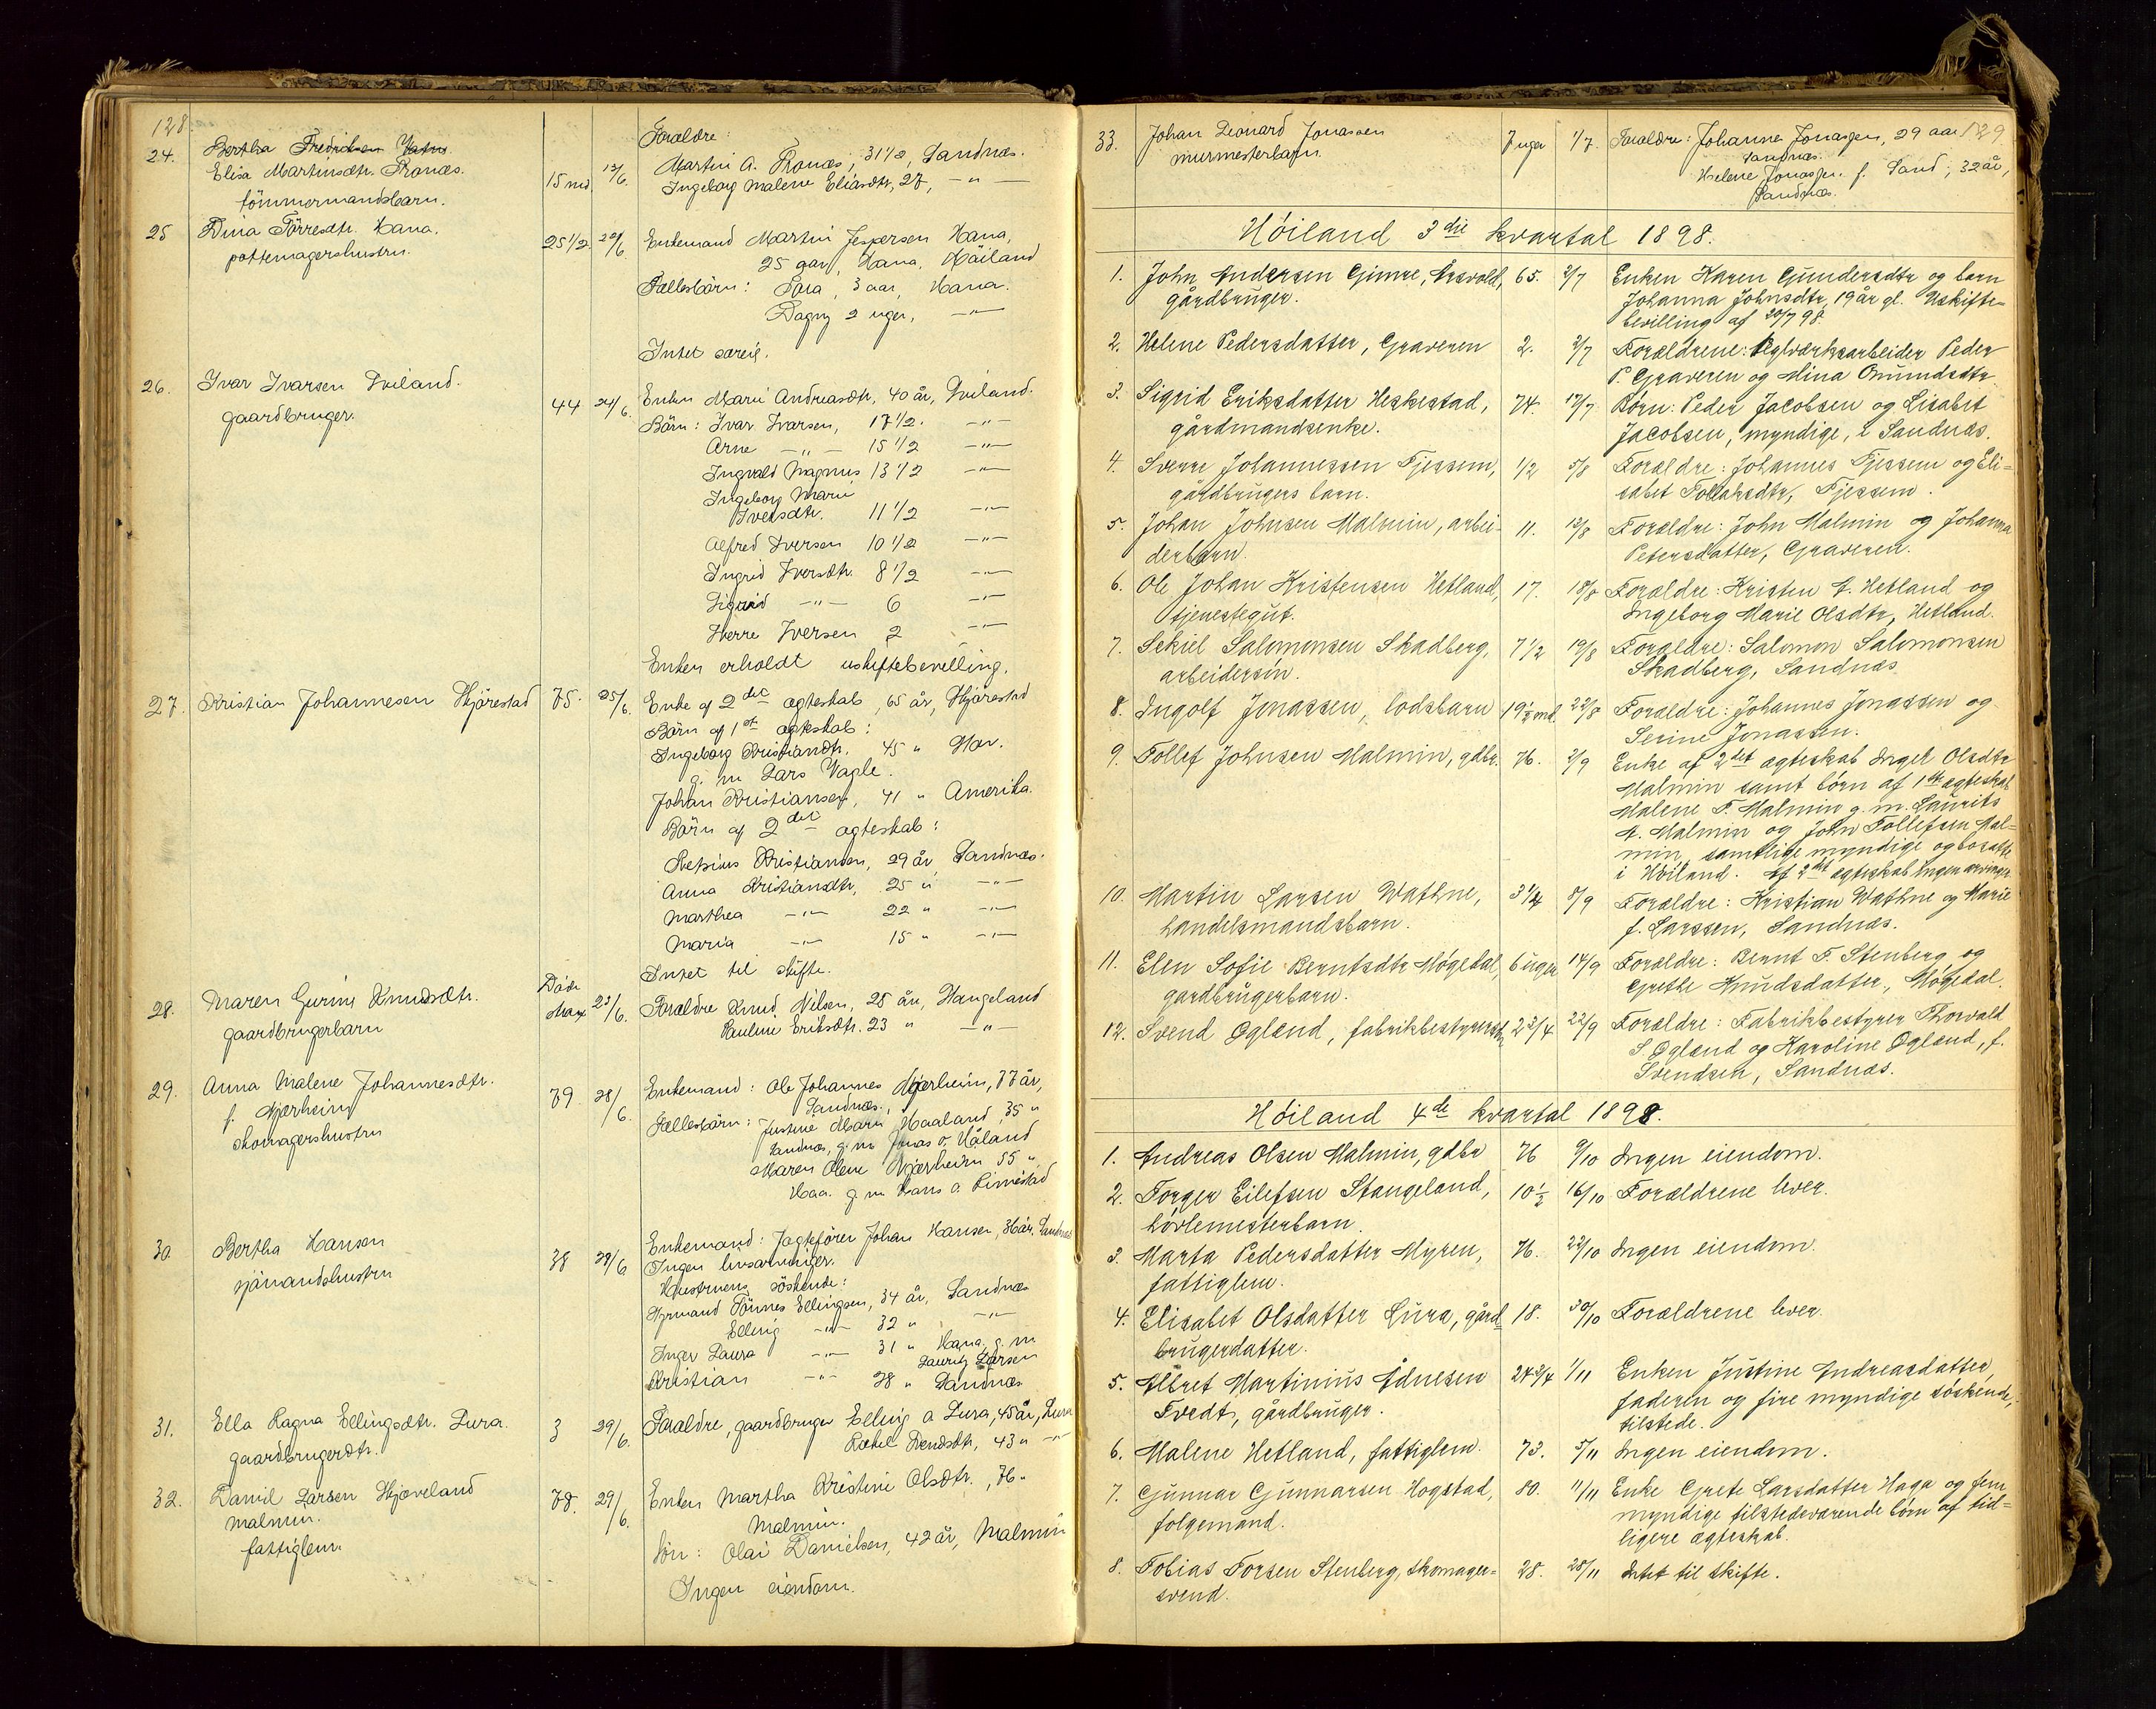 128
24. Bertha Fredriksen Vatne
Elisa Martinsdtr. Tronæs. 15 md. 13/6.
tömmermandsbarn.
Forældre:
Martin A. Tronæs, 31 1/2, Sandnæs.
Ingeborg Malene Eliasdtr, 27, —"—
25 Dina Törresdtr. Hana. 25 1/2 22/6.
pottemagerhustru.
Enkemand Martin Jespersen Hana,
25 gar, Hana, Höiland
Fællesbörn: Tora, 3 aar, Hana.
Dagny 2 uger, —"—
Intet særeie.
26. Ivar Ivarsen Sviland. 44 24/6.
gaardbruger.
Enken Marie Andreasdtr, 40 år, Sviland.
Börn: Ivar Ivarsen, 17 1/2. —"—
Arne —"— 15 1/2 —"—
Ingvald Magnus 13 1/2 —"—
Ingeborg Marie
Iversdtr. 11 1/2 —"—
Alfred Iversen 10 1/2 —"—
Ingrid Iversdtr. 8 1/2 —"—
Sigrid —"— 6 —"—
Sverre Iversen 2 —"—
Enken erholdt uskiftebevilling.
27. Kristian Johannesen Hjörestad 75. 25/6.
Enke af 2det ægteskab, 65 år, Hjörestad
Börn af 1ste ægteskab:
Ingeborg Kristiandtr. 45 "
g. m. Lars Vagle.
Johan Kristiansen, 41 " Amerika.
Börn af 2det ægteskab:
Kristiansen, 29 år, Sandnæs.
Anna Kristiansdtr, 25 " —"—
Marthea —"— 22 " —"—
Maria —"— 15 " —"—
Intet til skifte.
28. Maren Gurine Knudsdtr. Döde strax 23/6.
gaardbrugerbarn
Forældre Knud Nilsen, 28 år, Stangeland
Pauline Eriksdtr. 23 " —"—
29. Anna Malene Johannesdtr. 79 28/6.
f. Njærheim
skomagerhustru
Enkemand: Ole Johannes Njærheim, 77 år,
Sandnæs.
Fællesbörn: Justine Marie Haaland, 35 "
Sandnæs, g. m. Jonas O. Håland
Maren Olene Njærheim 55 "
Haa. g. m. Hans O. Rimestad
30. Bertha Hansen 38 28/6.
sjömandshustru
Enkemand: Jagtefören Johan Hansen, 36 år, Sandnæs
Ingen livsarvinger.
Hustruens söskende:
Styrmand Tönnes Ellingsen, 34 år, Sandnæs
Elling —"— 32 " —"—
Inger Laura —"— 31 " Hana, g. m.
Lauritz Larsen
Kristian —"— 28 " Sandnæs
31. Ella Ragna Ellingsdtr. Lura. 3 29/6.
gaardbrugerdtr.
Forældre, gaardbruger Elling A Lura, 45 år, Lura
Rakel Svendsdtr, 43 " —"—
32. Daniel Larsen Skjæveland 78. 29/6.
Malmin.
fattiglem.
Enken Martha Kristine Olsdtr., 76 "
Malmin.
Sön: Olai Danielsen, 42 år, Malmin
Ingen eiendom.
129
33. Johan Leonard Jonassen 7 uger 1/7.
murmesterbarn.
Forældre: Johannes Jonassen, 29 aar
Sandnæs.
Helene Jonassen f. Sand, 32 år,
Sandnæs.
Høiland 3die kvartal 1898.
1. John Andersen Gimre, Arsvold, 65. 2/7
gårdbruger.
Enken Karen Gundersdtr og barn
Johanna Johnsdtr, 19 år gl. Uskifte=
bevilling af 20/7 98.
2. Helene Pedersdatter, Graveren 2. 2/7
Forældrene: Teglværksarbeider Peder
P. Graveren og Mina Omundsdtr
3. Sigrid Eriksdatter Heskestad, 74. 17/7
gårdmandsenke.
Børn: Peder Jacobsen og Lisabet
Jacobsen, myndige, i Sandnæs.
4. Sverre Johannessen Tjessem, 1/2 5/8
gårdbrugers barn.
Forældre: Johannes Tjessem og Eli=
sabet Tollaksdtr, Tjessem.
5. Johan Johnsen Malmin, arbei- 11. 13/8
derbarn.
Forældre: John Malmin og Johanna
Petersdatter, Graveren.
6. Ole Johan Kristensen Hetland, 17. 18/8
tjenestegut.
Forældre: Kristen A. Hetland og
Ingeborg Marie Olsdtr, Hetland.
7. Sekiel Salomonsen Skadberg, 7 1/2 19/8
arbeidersön.
Forældre: Salomon Salomonsen
Skadberg, Sandnæs
8. Ingolf Jonassen, lodsbarn 19 1/2 md. 22/8
Forældre: Johannes Jonassen og
Serine Jonassen.
9. Tollef Johnsen Malmin, gdbr. 76. 2/9
Enke af 2det ægteskab Inger Olsdtr
Malmin samt børn af 1ste ægteskab
Malene T. Malmin g. m. Laurits
A. Malmin og John Tollefsen Mal=
min, samtlige myndige og bosatte
i Høiland. Af 2det ægteskab ingen arvinger
10. Martin Larsen Wathne, 3 1/4 8/9
handelsmandsbarn.
Forældre: Kristian Wathne og Marie
f. Larssen, Sandnæs.
11. Elen Sofie Berntsdtr Høgedal, 6 uger 14/9
gardbrugerbarn.
Forældre: Bernt T. Stenberg og
Grethe Knudsdatter, Høgedal.
12. Svend Øglænd, fabrikbestyrersøn 2 3/4 22/9
Forældre: Fabrikbestyrer Thorvald
S. Øglænd og Karoline Øglænd, f.
Svendsen, Sandnæs.
Høiland 4de kvartal 1898.
1. Andreas Olsen Malmin, gdbr 76 9/10 Ingen eiendom.
2. Torger Eilefsen Stangeland, 10 1/2 16/10 Forældrene lever.
høvlemesterbarn.
3. Marta Pedersdatter Myren, 76. 22/10 Ingen eiendom.
fattiglem.
4. Elisabet Olsdatter Lura, gård= 18. 30/10 Forældrene lever.
brugerdatter.
5. Albret Martinius Ådnesen 24 3/4 1/11
Tvedt, gårdbruger.
Enken Justine Andreasdatter,
faderen og fire myndige söskende,
tilstede.
6. Malene Hetland, fattiglem. 73. 5/11 Ingen eiendom.
7. Gunnar Gunnarsen Hogstad, 80. 11/11
folgemand.
Enke Grete Larsdatter Haga og fem
myndige tilstedeværende børn af tid=
ligere ægteskab.
8. Tobias Torsen Stenberg, skomager= 28. 28/11 Intet til skifte.
svend.